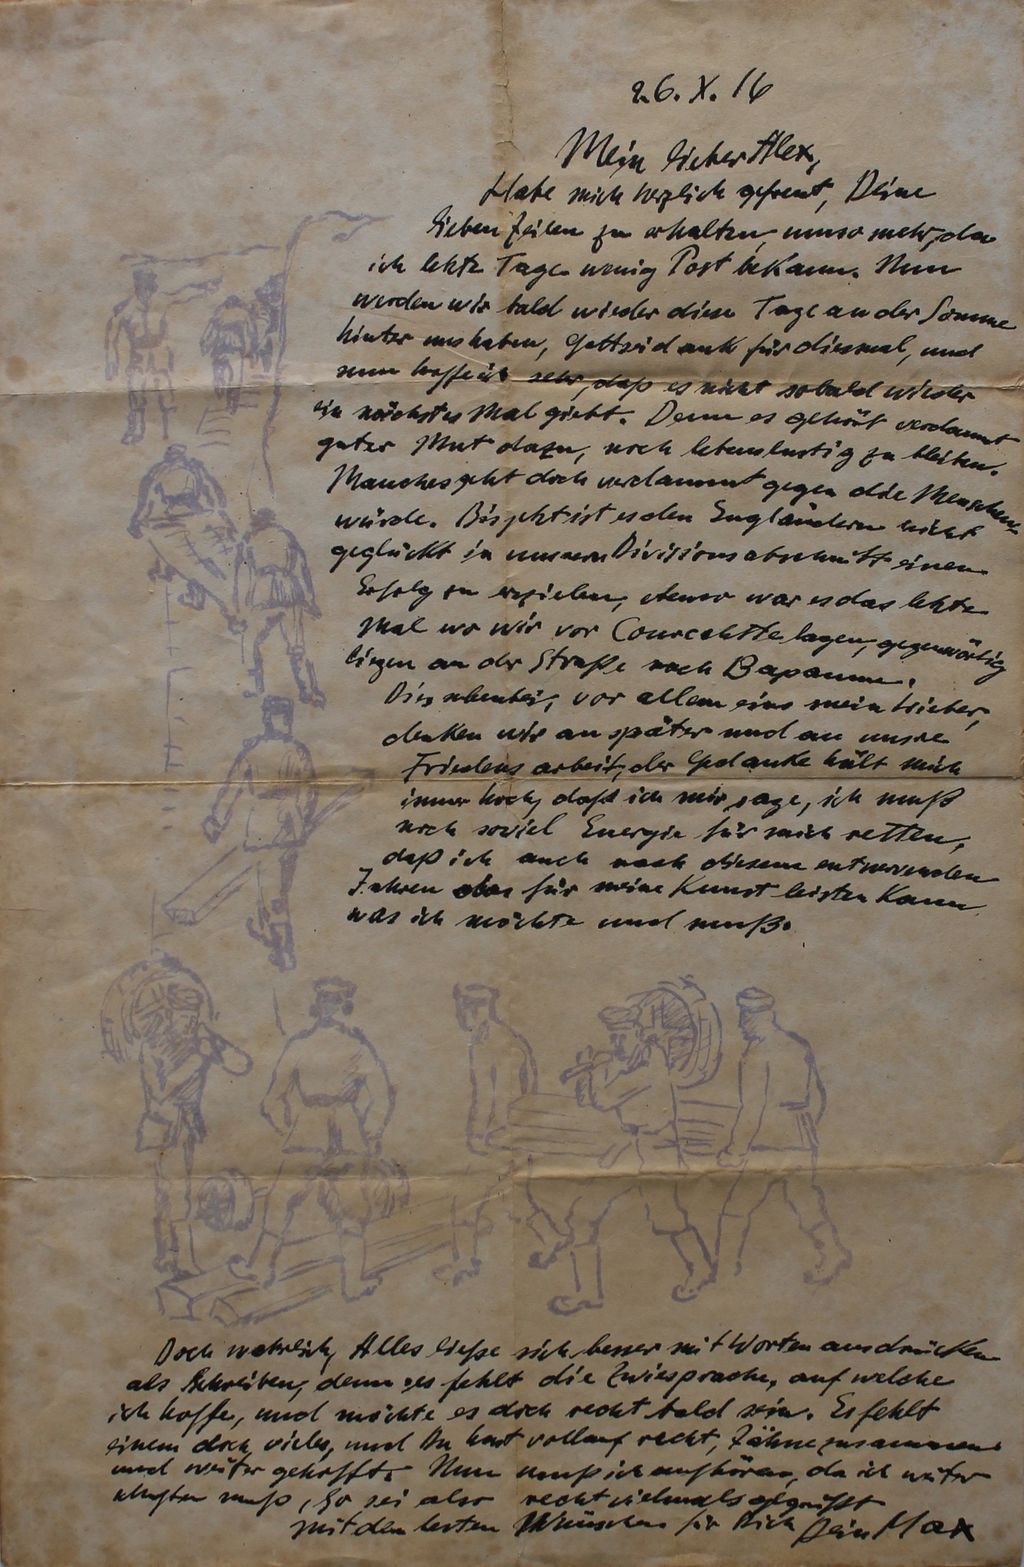 26. X. 16
Mein lieber Alex,
Habe mich herzlich gefreut, Deine
lieben Zeilen zu erhalten, umso mehr, da
ich letzte Tage wenig Post bekam. Nun
werden wir bald wieder diese Tage an der Somme
hinter uns haben, Gottseidank für diesmal, und
nun hoffe ich sehr, daß es nicht sobald wieder
ein nächstes Mal giebt. Denn es gehört verdammt
guter Mut dazu, noch lebenslustig zu bleiben.
Manches geht doch verdammt gegen die Menschen-
würde. Bis jetzt ist es den Engländern nicht
geglückt in unserem Divisionsabschnitt einen
Erfolg zu erzielen, ebenso war es das letzte
Mal wo wir vor Courcelette lagen, gegenwärtig
liegen an der Straße nach Bapaume.
Dies nebenbei, vor allem eins mein Lieber,
denken wir an später und an unsre
Friedensarbeit, der Gedanke hält mich
immer hoch, daß ich mir sage, ich muß
noch soviel Energie für mich retten,
daß ich auch nach diesen
Jahren das für meine Kunst leisten kann
was ich möchte und muß.
Doch wahrlich, Alles ließe sich besser mit Worten ausdrücken
als Schreiben, denn es fehlt die Zwiesprache, auf welche
ich hoffe, und möchte es doch recht bald sein. Es fehlt
einem doch vieles, und Du hast vollauf recht, Zähne zusammen
und weiter gehofft. Nun muß ich aufhören, da ich weiter
muß, So sei also recht vielmals gegrüßt
mit den besten Wünschen für Dich Dein Max